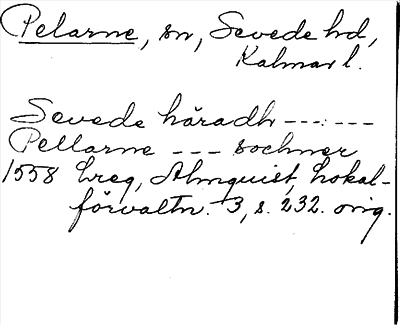 Pelarne, sn, Sevede hd,
Kalmar l.
Sevede häradh -------
Pellarne --- sochner
1558 Lreg, Almquist, Lokal-
förvaltn. 3, s. 232. orig.